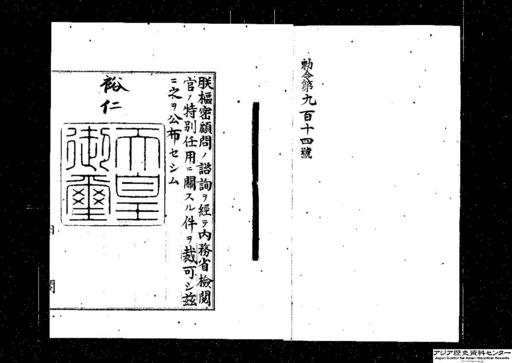 勅令第九百十四號
朕樞密顧問ノ諮詢ヲ經テ内務省檢閲
官ノ特別任用ニ關スル件ヲ裁可シ茲
ニ之ヲ公布セシム
裕仁
天皇
御璽
内閣
アジア歴史資料センター
Japan Center for Asian Historical Records